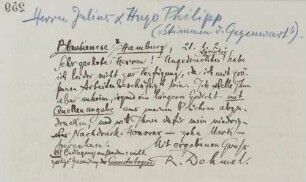 399
Herren Julius & Hugo Philipp
("Stimmen d. Gegenwart")
Blankenese b/Hamburg, 21. 2. 01.
Sehr geehrte Herren! Ungedrucktes habe
ich leider nicht zur Verfügung, da ich mit grö-
sseren Arbeiten beschäftigt bin. Ich stelle Ihnen
aber anheim, irgend ein längeres Gedicht mit
Quellenangabe aus meinen Büchern abzu-
drucken, und will Ihnen dafür mein niedrig-
stes Nachdruck-Honorar – zehn Mark –
berechnen.
Mit ergebenem Gruss
R. Dehmel.